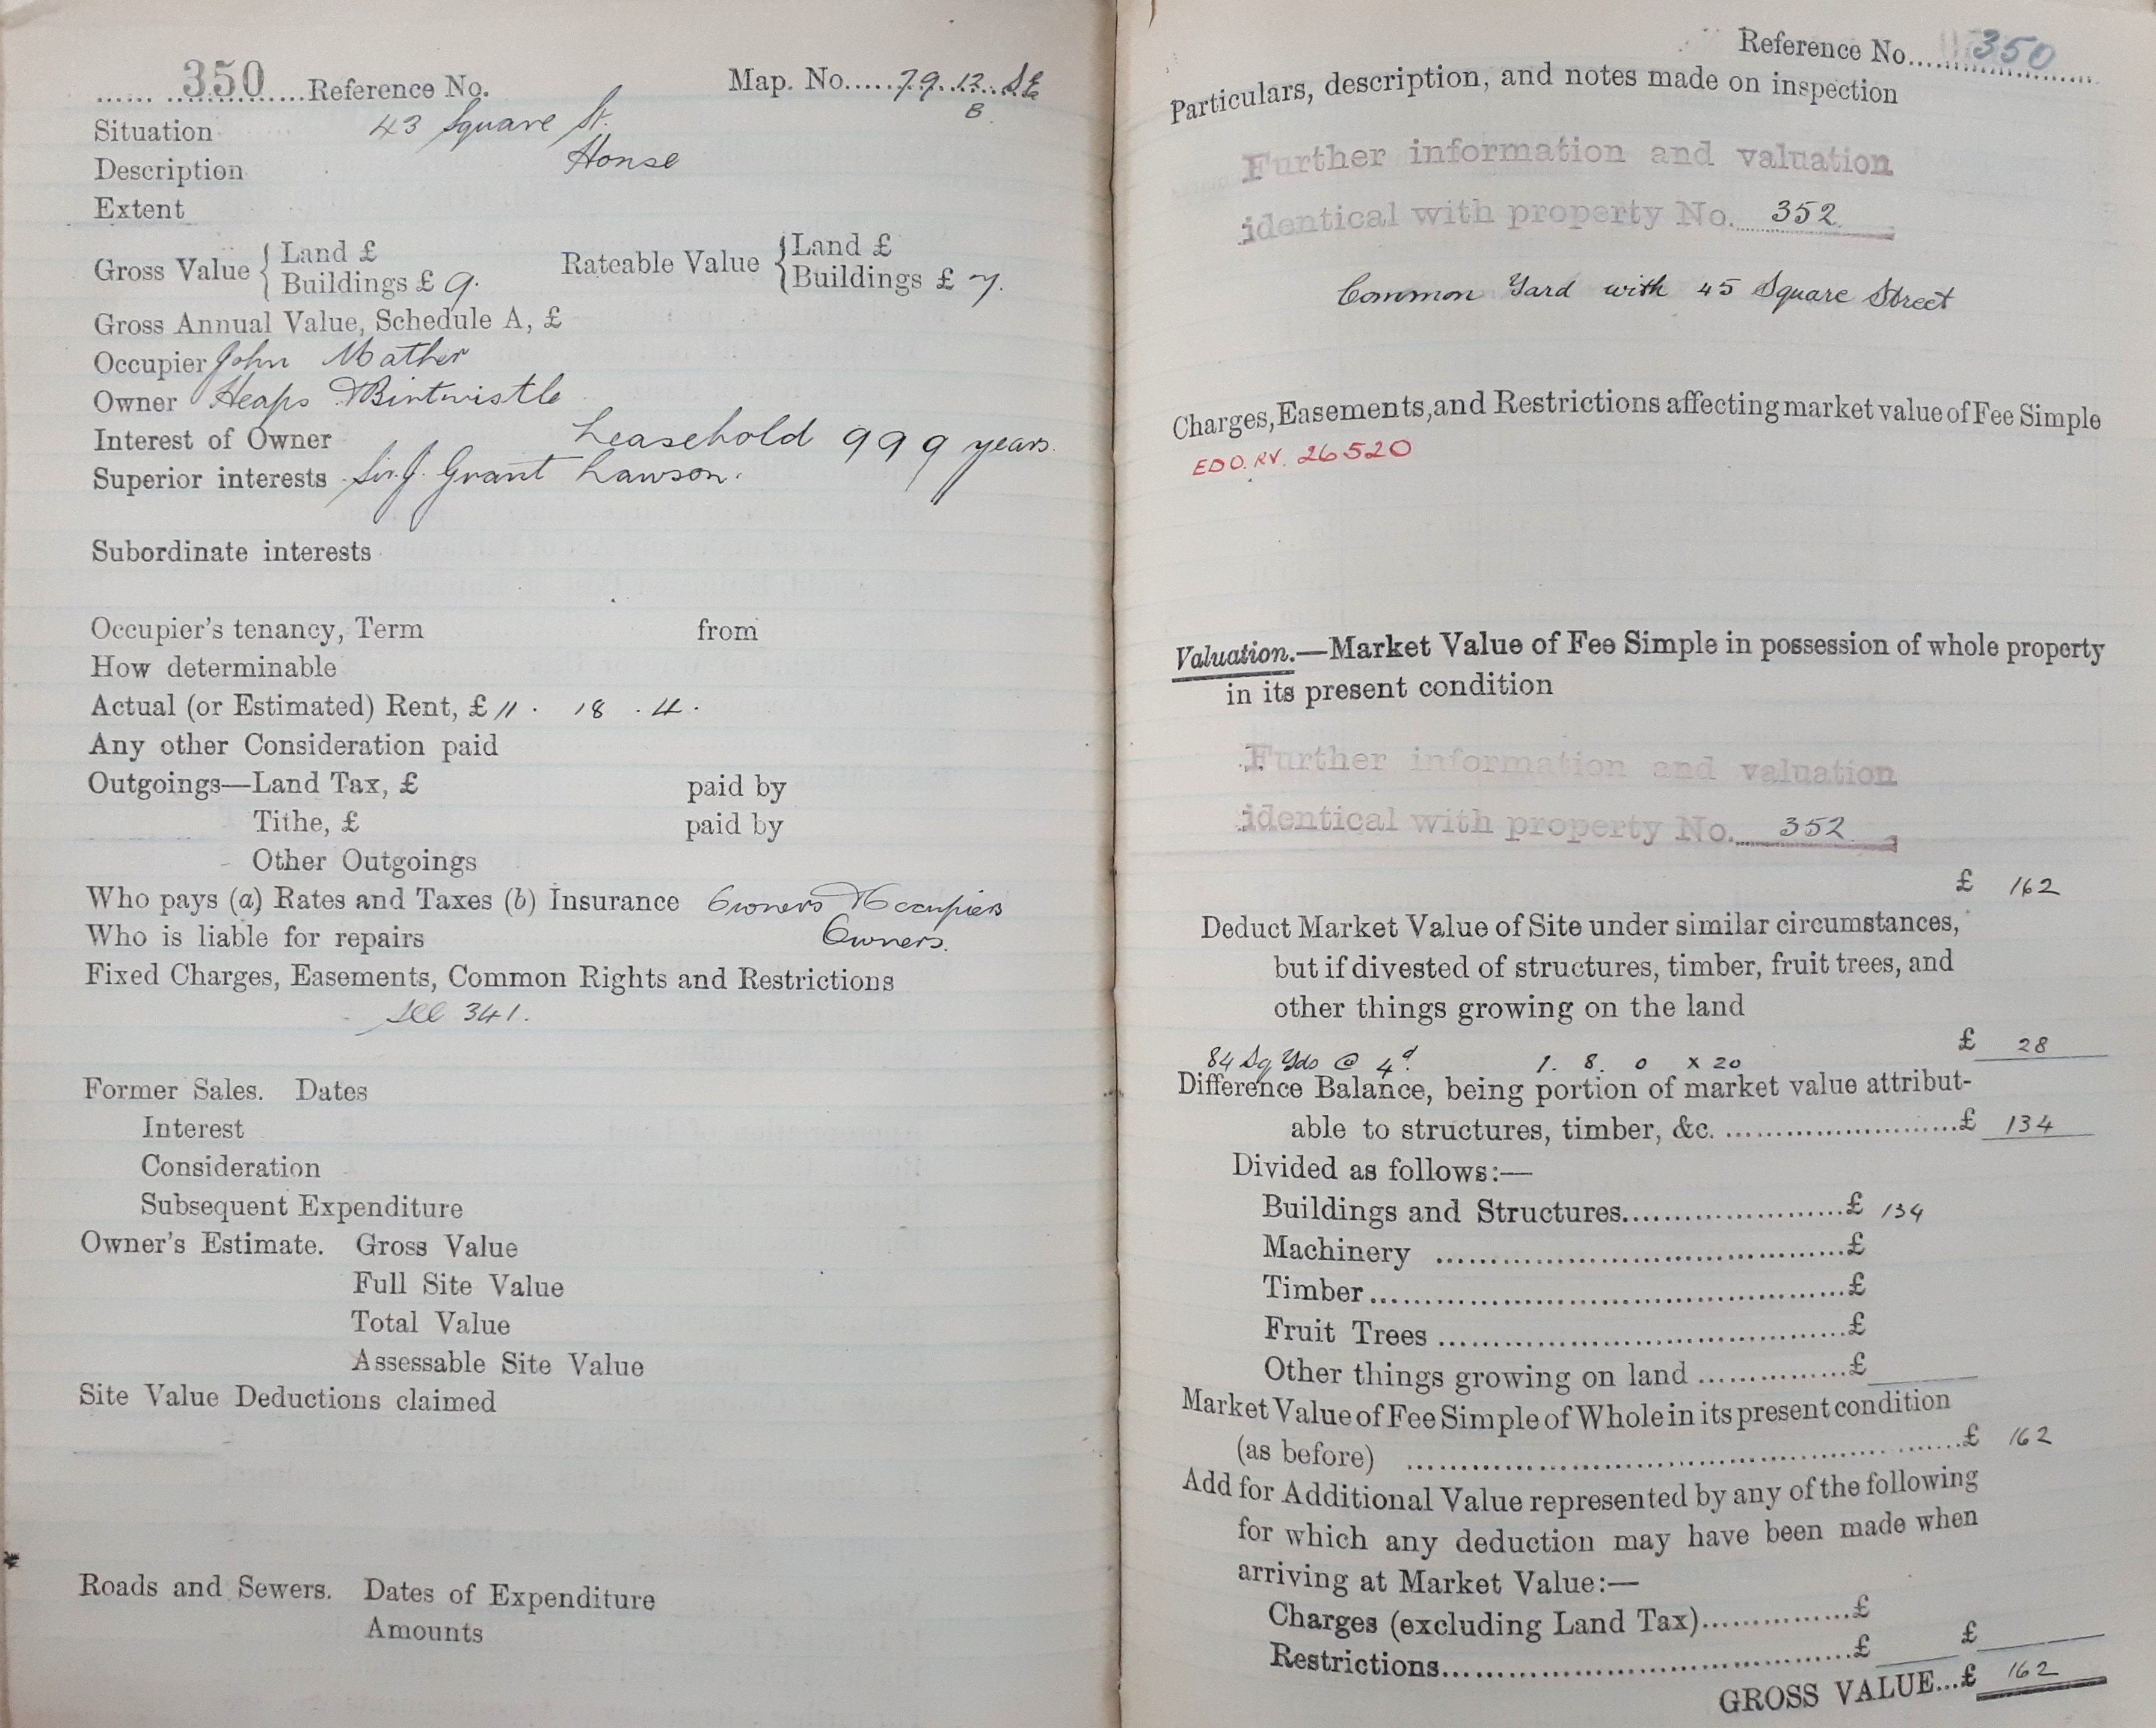 350 Reference No. Map. No. 79.13. SE
B.
Situation 43 Square St.
Description House
Extent
Gross Value { Land £
Buildings £ 9. Rateable Value { Land £
Buildings £ 7.
Gross Annual Value, Schedule A, £
Occupier John Mather
Owner Heaps & Birtwistle
Interest of Owner Leasehold 999 years.
Superior interests Sir J. Grant Lawson.
Subordinate interests
Occupier's tenancy, Term from
How determinable
Actual (or Estimated) Rent, £ 11 . 18 . 4 .
Any other Consideration paid
Outgoings—Land Tax, £ paid by
Tithe, £ paid by
Other Outgoings
Who pays (a) Rates and Taxes (b) Insurance Owners & Occupiers
Who is liable for repairs Owners.
Fixed Charges, Easements, Common Rights and Restrictions
See 341.
Former Sales. Dates
Interest
Consideration
Subsequent Expenditure
Owner's Estimate. Gross Value
Full Site Value
Total Value
Assessable Site Value
Site Value Deductions claimed
Roads and Sewers. Dates of Expenditure
Amounts
Reference No. 350
Particulars, description, and notes made on inspection
Further information and valuation
identical with property No. 352
Common Yard with 45 Square Street
Charges, Easements, and Restrictions affecting market value of Fee Simple
EDO. RV. 26520
Valuation.—Market Value of Fee Simple in possession of whole property
in its present condition
Further information and valuation
identical with property No. 352
£ 162
Deduct Market Value of Site under similar circumstances,
but if divested of structures, timber, fruit trees, and
other things growing on the land
£ 28
84 Sq Yds @ 4d. 1. 8. 0 x 20
Difference Balance, being portion of market value attribut-
able to structures, timber, &c. £ 134
Divided as follows:—
Buildings and Structures £ 134
Machinery £
Timber £
Fruit Trees £
Other things growing on land £
Market Value of Fee Simple of Whole in its present condition
(as before) £ 162
Add for Additional Value represented by any of the following
for which any deduction may have been made when
arriving at Market Value:—
Charges (excluding Land Tax) £
Restrictions £ £
GROSS VALUE...£ 162